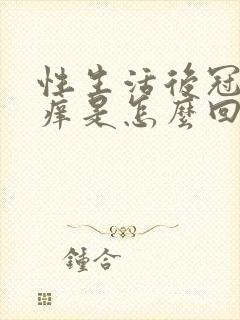 性生活後冠
痒是怎麼回
鍾合